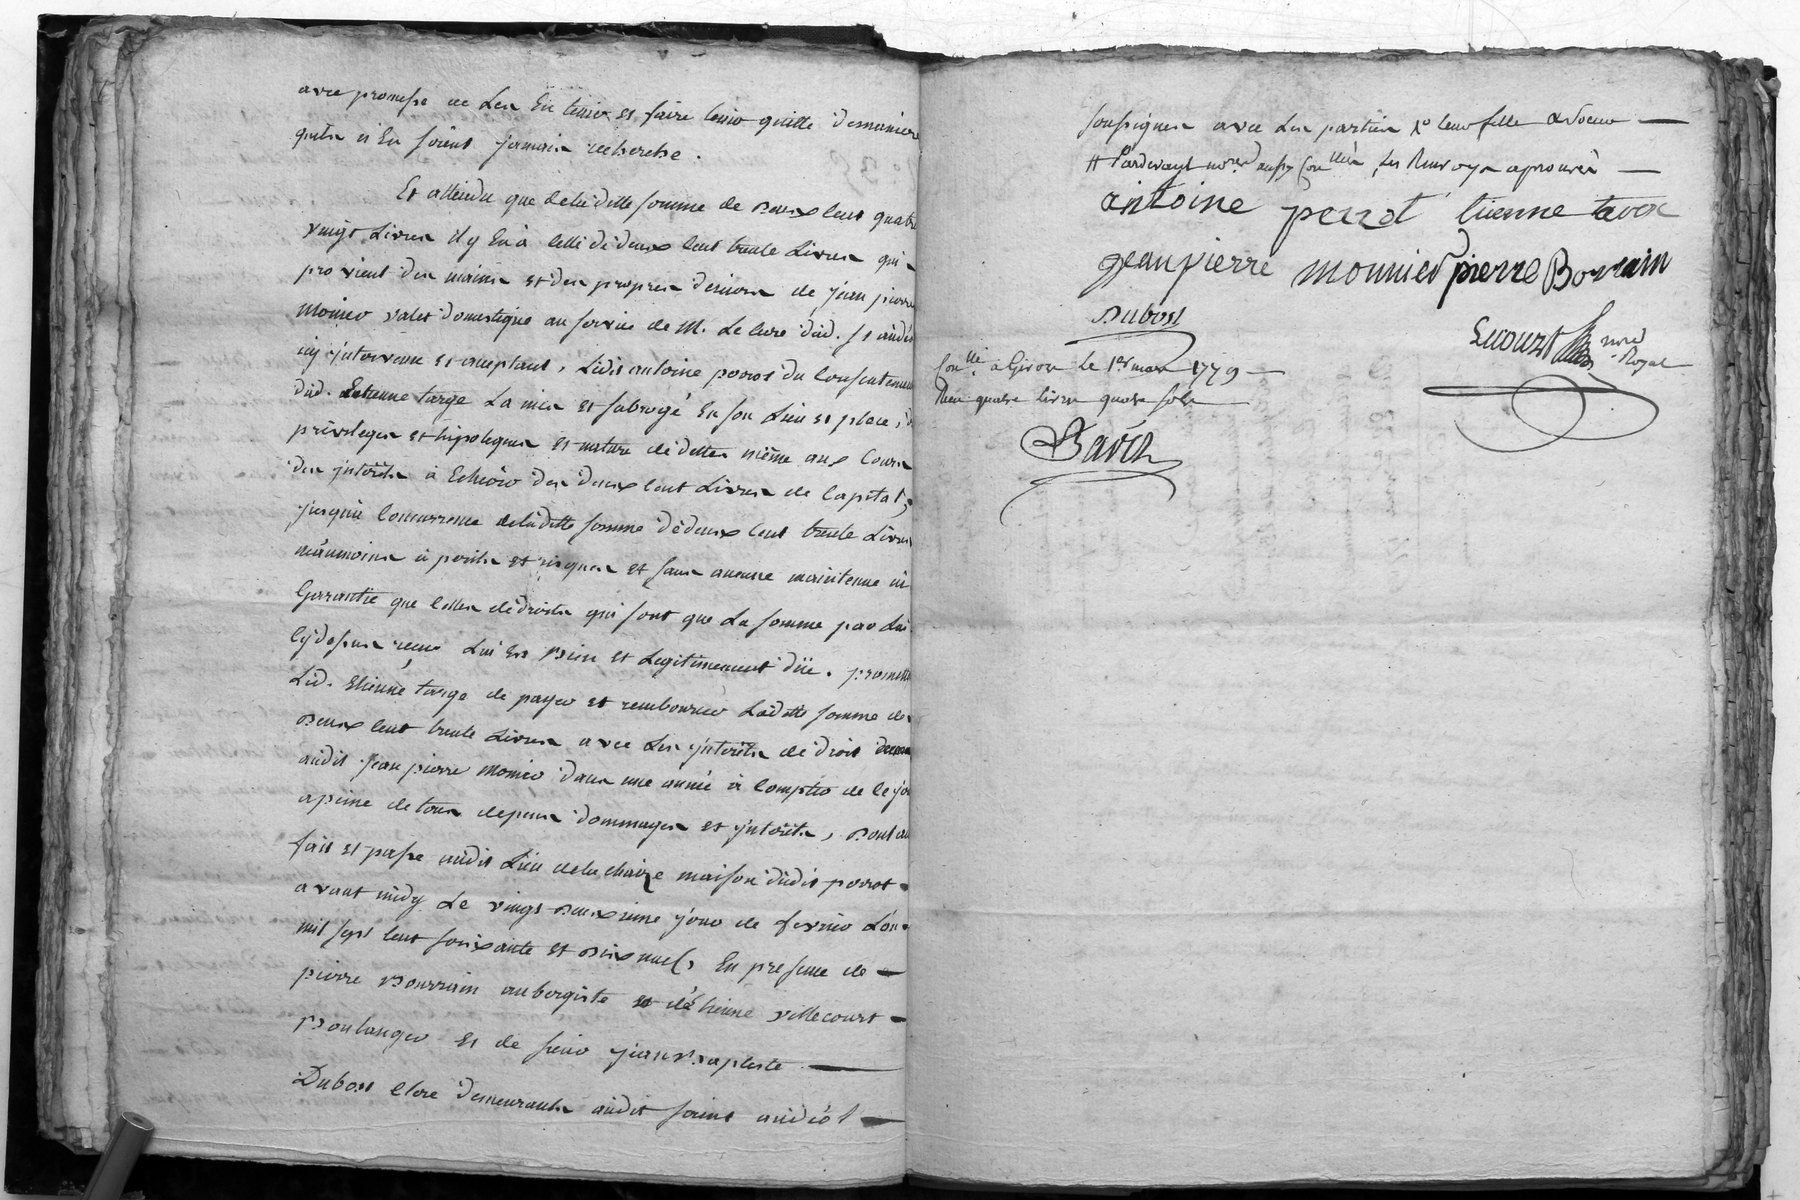 avec promesse de Les En tenir et faire tenir quitte demaniere
quils n'En soient jamais recherche .
Et attendu que deladitte somme de Deux Cent quatre
vingt Livres il y En à celle de deux Cent trente Livres qui
provient des mains et des propres deniers de jean pierre
Monier valet domestique au service de M. Le Curé dud. St andéol
icy intervenu et acceptant, Ledit antoine perrot du Consentement
dud. Etienne targe La mis et subrogé En son Lieu et place,
privileges et hipoteques et nature de dette même aux Cours
des jnterêts à Echeoir des deux Cent Livres de Capital,
jusqu'à Concurrence deladitte somme dédeux Cent trente Livres
néanmoins à perils et risques et sans aucune maintenue ni
Garantie que celles dedroits qui sont que La somme par Lui
Cydessus recue Lui Est Bien et Legitimement düe . promettant
Led. Etienne targe de payer et rembourcer Laditte somme de
Deux Cent trente Livres avec Les jnterêts de droit
audit jean pierre Monier dans une année à Compter de Ce jour
apeine de tous depens dommages et jnterêts, Dont acte
fait et passé audit Lieu dela chaize maison dudit perrot
avant midy Le vingt Deuxieme jour de fevrier L'an
mil sept Cent soixante et Dix neuf, En presence de
pierre Bourrain aubergiste et de Etienne villecourt
Boulanger et de sieur jean Baptiste
Dubost Clerc demeurants audit saint andéol
soussignes avec Les parties
antoine perrot tienne
jean pierre monnier pierre Borrain
Dubost
not. Royal
Con.llé à Givors Le 1er mars 1779
Recu quatre livres quatre sols